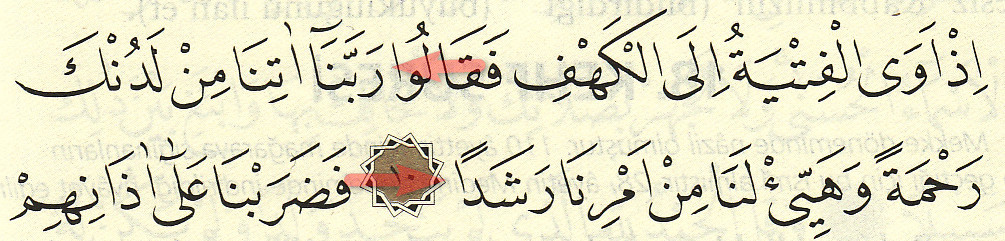 اِذْ اَوَى الْفِتْيَةُ اِلَى الْكَهْفِ فَقَالُوا رَبَّنَٓا اٰتِنَا مِنْ لَدُنْكَ
رَحْمَةً وَهَيِّئْ لَنَا مِنْ اَمْرِنَا رَشَدًا ﴿١٠﴾ فَضَرَبْنَا عَلٰٓى اٰذَانِهِمْ